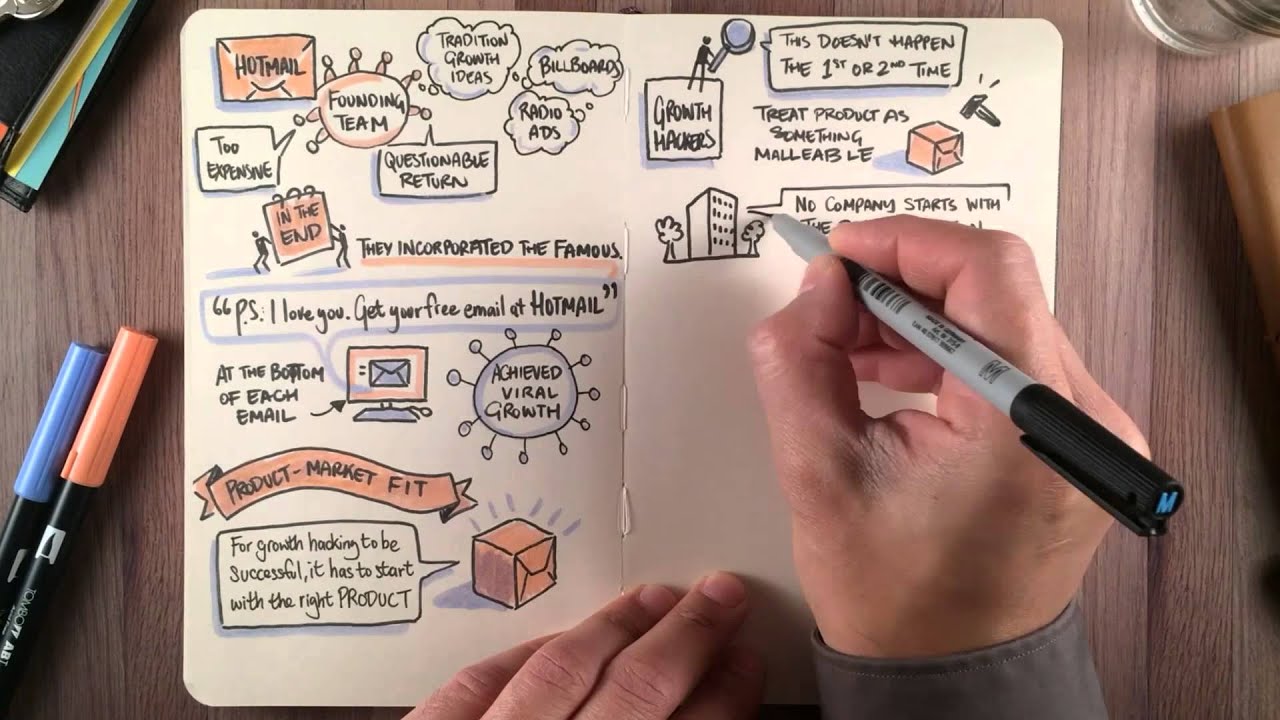 HOTMAIL
FOUNDING
TEAM
TRADITION
GROWTH
IDEAS
BILLBOARDS
RADIO
ADS
TOO
EXPENSIVE
QUESTIONABLE
RETURN
IN THE
END
THEY INCORPORATED THE FAMOUS.
“P.S.: I love you. Get your free email at HOTMAIL”
AT THE BOTTOM
OF EACH
EMAIL
ACHIEVED
VIRAL
GROWTH
PRODUCT-MARKET FIT
For growth hacking to be
successful, it has to start
with the right PRODUCT
GROWTH
HACKERS
THIS DOESN'T HAPPEN
THE 1ST OR 2ND TIME
TREAT PRODUCT AS
SOMETHING
MALLEABLE
NO COMPANY STARTS WITH
THE
M
TOMBOW ABT